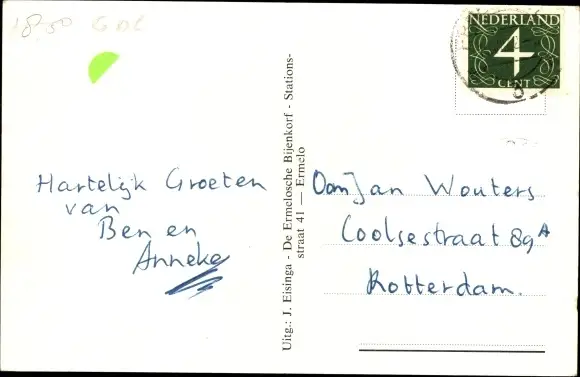 18,50 GDL
NEDERLAND
4
CENT
Hartelijk Groeten
van
Ben en
Anneke
Uitg.: J. Eisinga - De Ermelosche Bijenkorf - Stations-
straat 41 — Ermelo
Oom Jan Wouters
Coolsestraat 89A
Rotterdam.